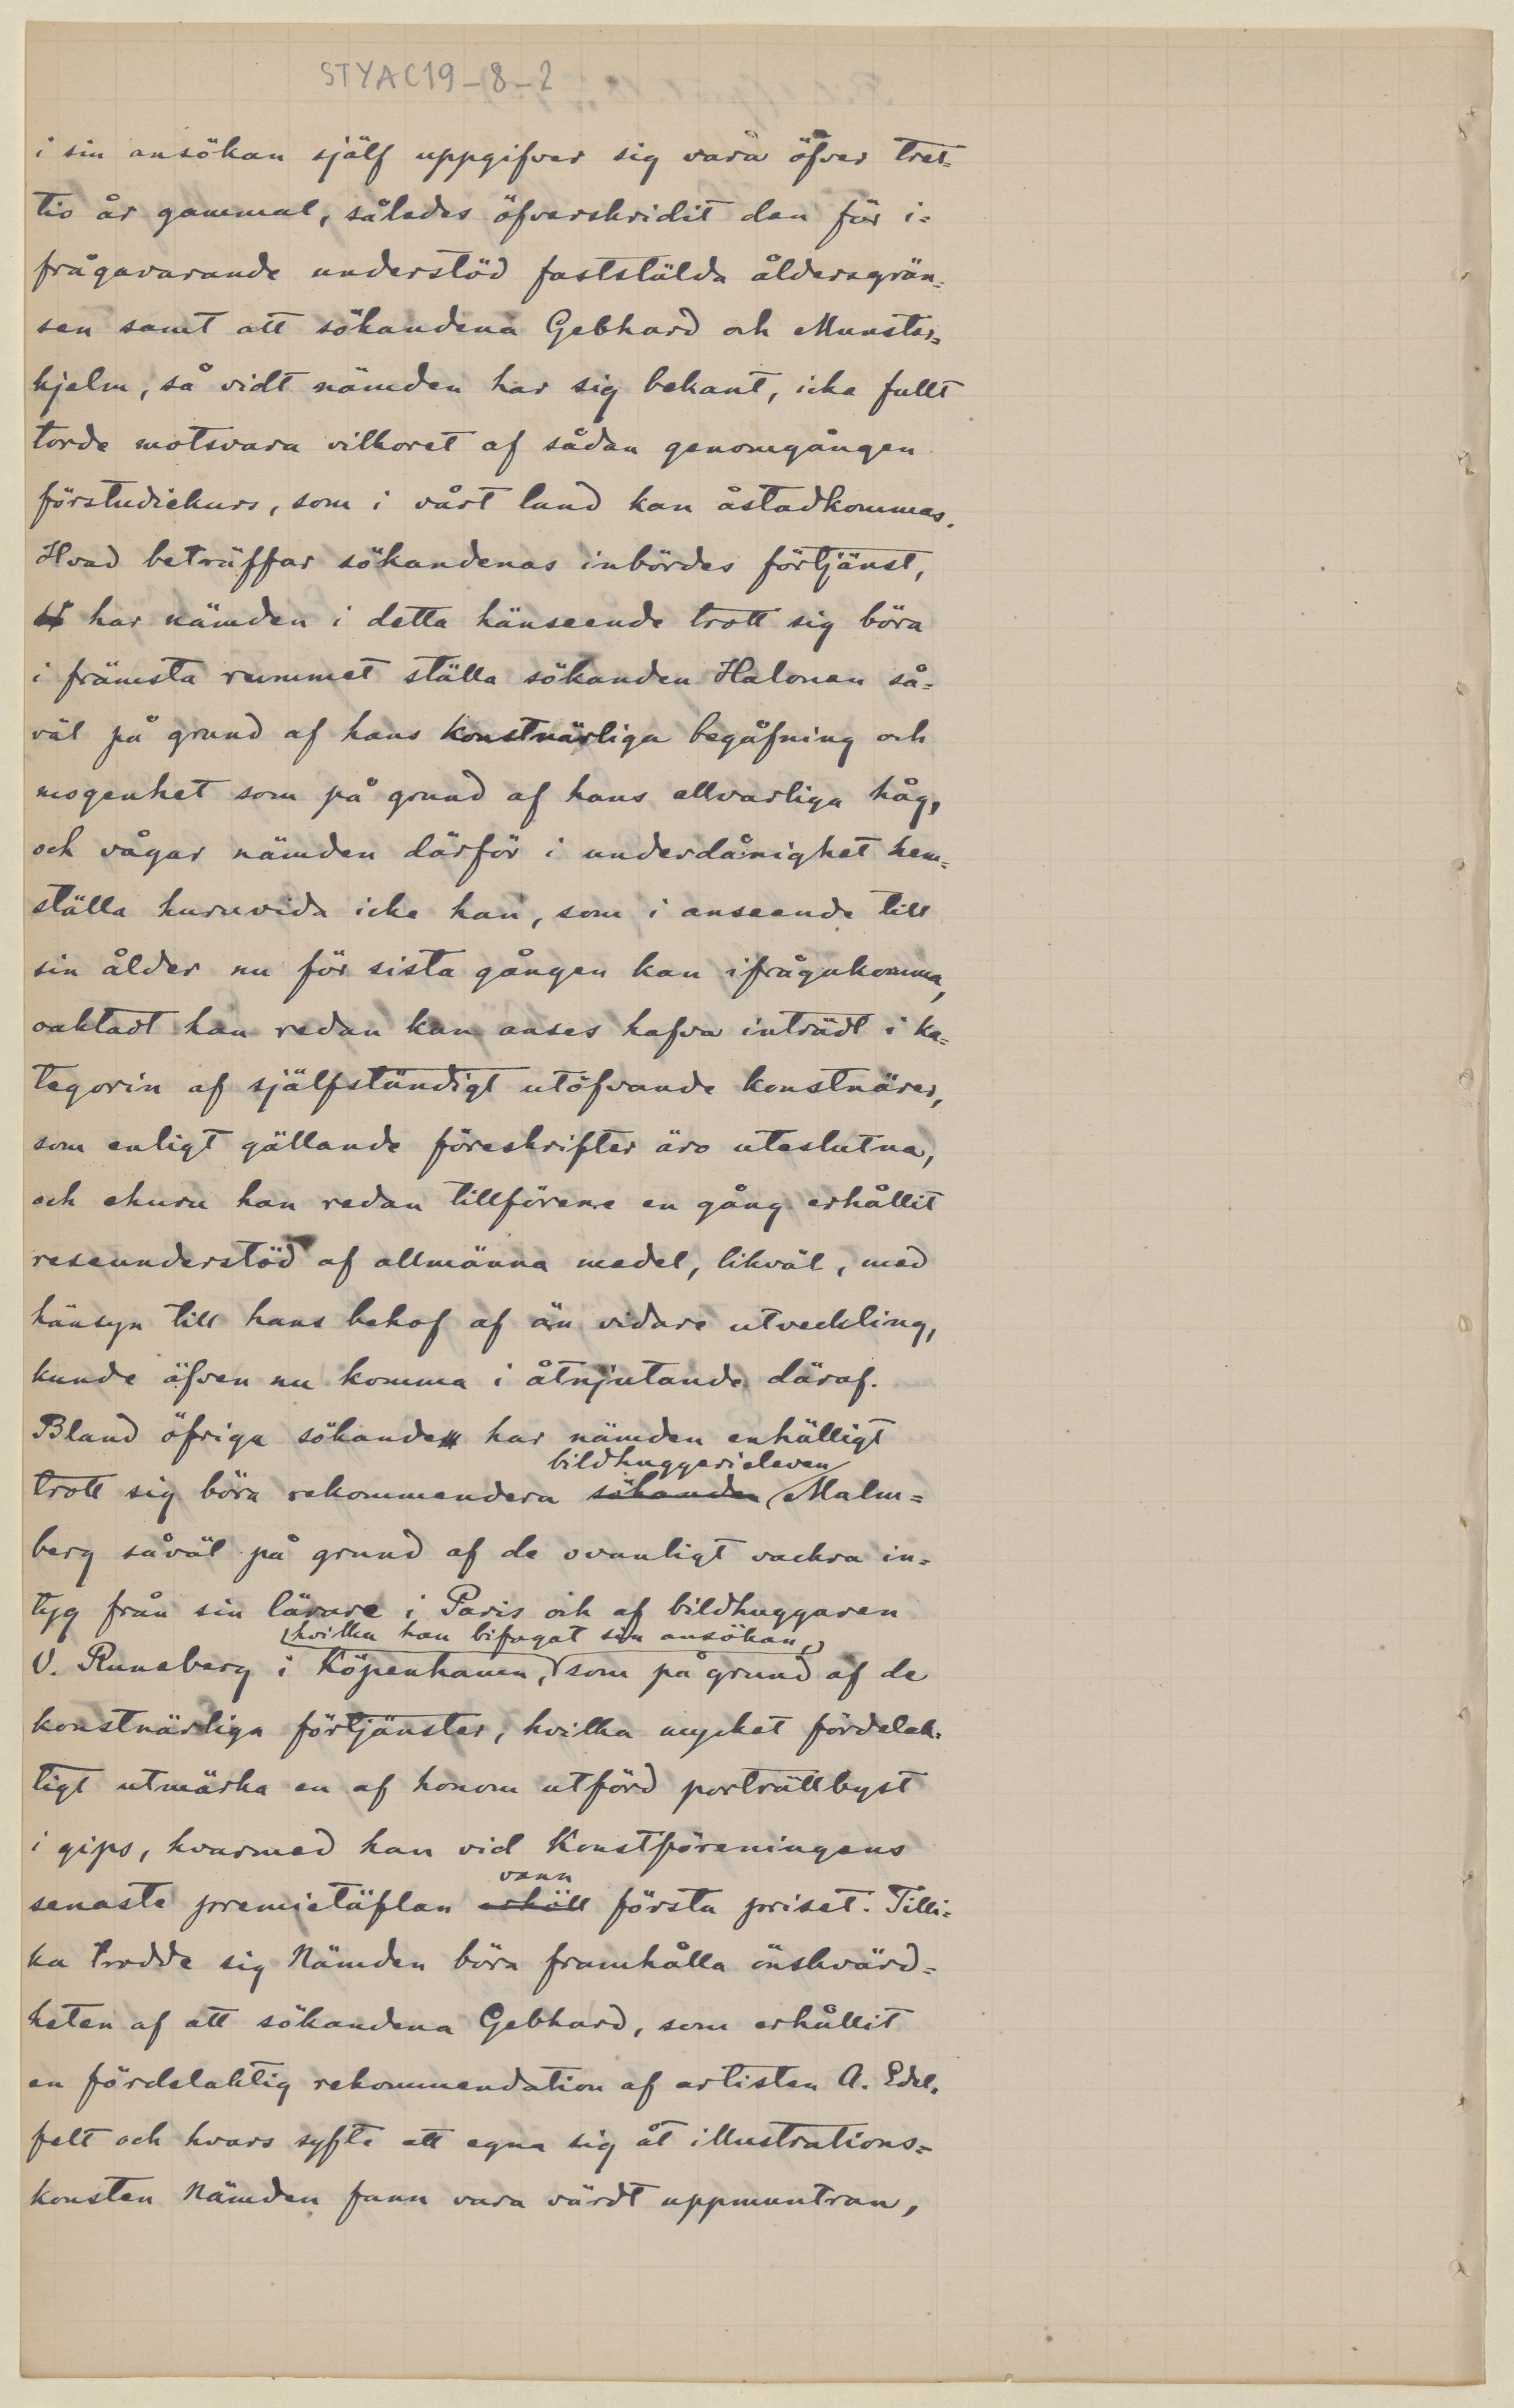 STYAC19-8-2
i sin ansökan själf uppgifver sig vara öfver tret=
tio år gammal, således öfverskridit den för i=
frågavarande understöd faststälda åldersgrän=
sen samt att sökandena Gebhard och Munster=
hjelm, så vidt nämden har sig bekant, icke fullt
torde motsvara vilkoret af sådan genomgången
förstudiekurs, som i vårt land kan åstadkommas.
Hvad beträffar sökandenas inbördes förtjänst,
har nämden i detta hänseende trott sig böra
i främsta rummet ställa sökanden Halonen så=
väl på grund af hans konstnärliga begåfning och
mogenhet som på grund af hans allvarliga håg,
och vågar nämden därför i underdånighet hem=
ställa huruvida icke han, som i anseende till
sin ålder nu för sista gången kan ifrågakomma,
oaktadt han redan kan anses hafva inträdt i ka=
tegorin af själfständigt utöfvande konstnärer,
som enligt gällande föreskrifter äro uteslutna,
och ehuru han redan tillförene en gång erhållit
reseunderstöd af allmänna medel, likväl, med
hänsyn till hans behof af än vidare utveckling,
kunde äfven nu komma i åtnjutande däraf.
Bland öfriga sökande har nämden enhälligt
bildhuggerieleven
trott sig böra rekommendera sökanden Malm=
berg såväl på grund af de ovanligt vackra in=
tyg från sin lärare i Paris och af bildhuggaren
hvilka han bifogat sin ansökan,
V. Runeberg i Köpenhamn, som på grund af de
konstnärliga förtjänster, hvilka mycket fördelak=
tigt utmärka en af honom utförd porträttbyst
i gips, hvarmed han vid Konstföreningens
vann
senaste premietäflan erhöll första priset. Tilli=
ka trodde sig Nämden böra framhålla önskvärd=
heten af att sökandena Gebhard, som erhållit
en fördelaktig rekommendation af artisten A. Edel=
felt och hvars syfte att egna sig åt illustrations=
konsten Nämden fann vara värdt uppmuntran,